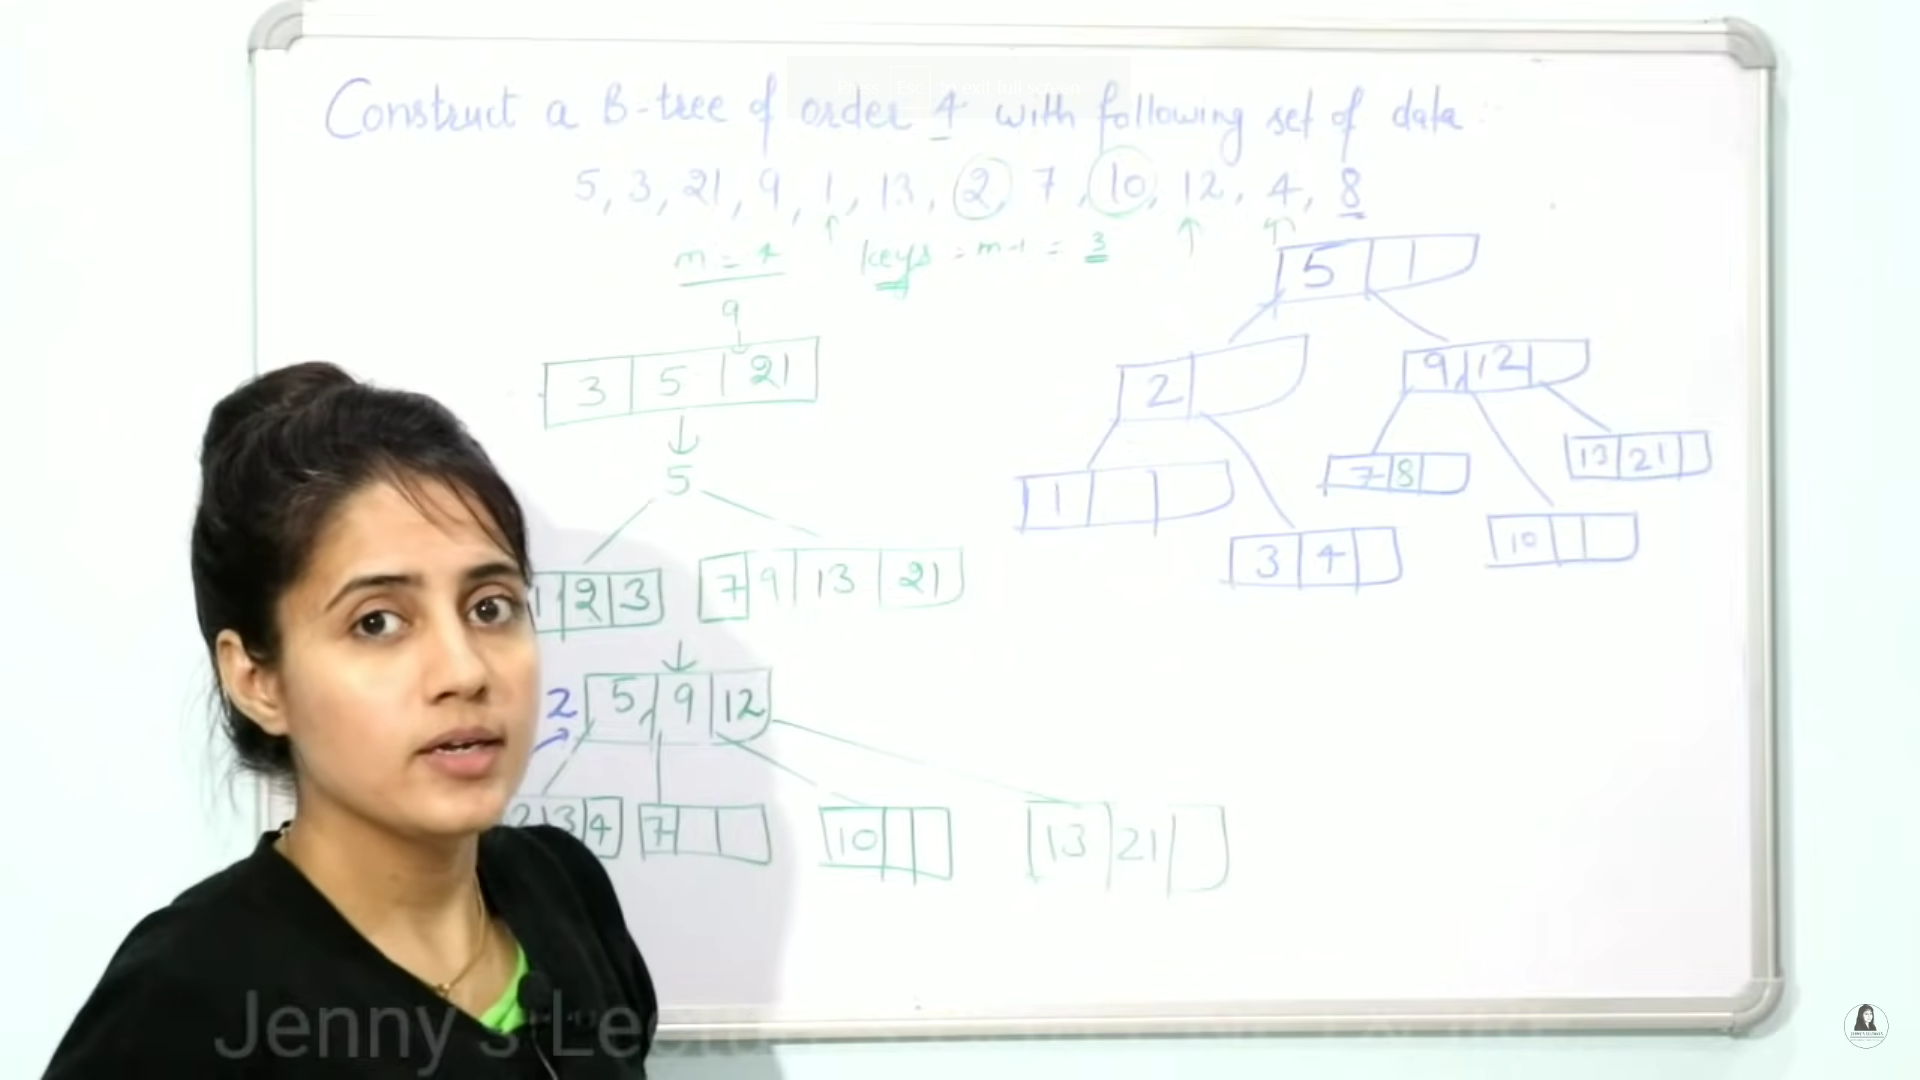 Press Esc to exit full screen
Construct a B-tree of order 4 with following set of data:
5, 3, 21, 9, 1, 13, 2, 7, 10, 12, 4, 8
m = 4 keys = m-1 = 3
9
3 5 21
5
1 2 3 7 9 13 21
2 5 9 12
2 3 4 7 10 13 21
5
2 9 12
1 7 8 13 21
3 4 10
Jenny's